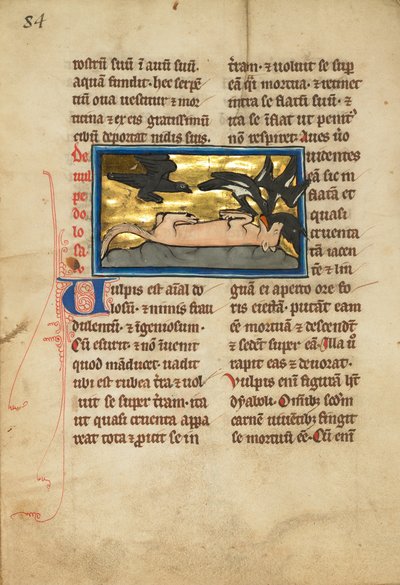 84
rostrū suū ī autū suū.
aquā fundit. hec serpē
tiū oua uescitur & mor
ticina & ex eis gratissimū
cibū deportat nidis suis.
De
uul
pe
do
lo
sa
Uulpis est aīal do
losū. & nimis frau
dulentū. & īgeniosum.
Cū esurit & nō īuenit
quod māducet. uadit
ubi est rubea t̄ra & uol
uit se super t̄ram. ita
ut quasi cruenta appa
reat tota & ꝓicit se in
t̄ram. & uoluit se suꝑ
eā mortua. & retinet
intra se flatū suū. &
ita se īflat ut penit᷒
non respiret. Aues u̅o
uidentes
eā sic in
flatā et
quasi
cruenta
tā iacen
tē & lin
guā ei aperto ore fo
ris eiectā. putāt eam
eē mortuā & descendt̄
& sedēt super eā. Illa u̅
rapit eas & deuorat.
Uulpis enī figurā h̄t
dyaboli. Omīb; sc̄dm
carnē uiuentib; fingit
se mortuū eē. Cū enī